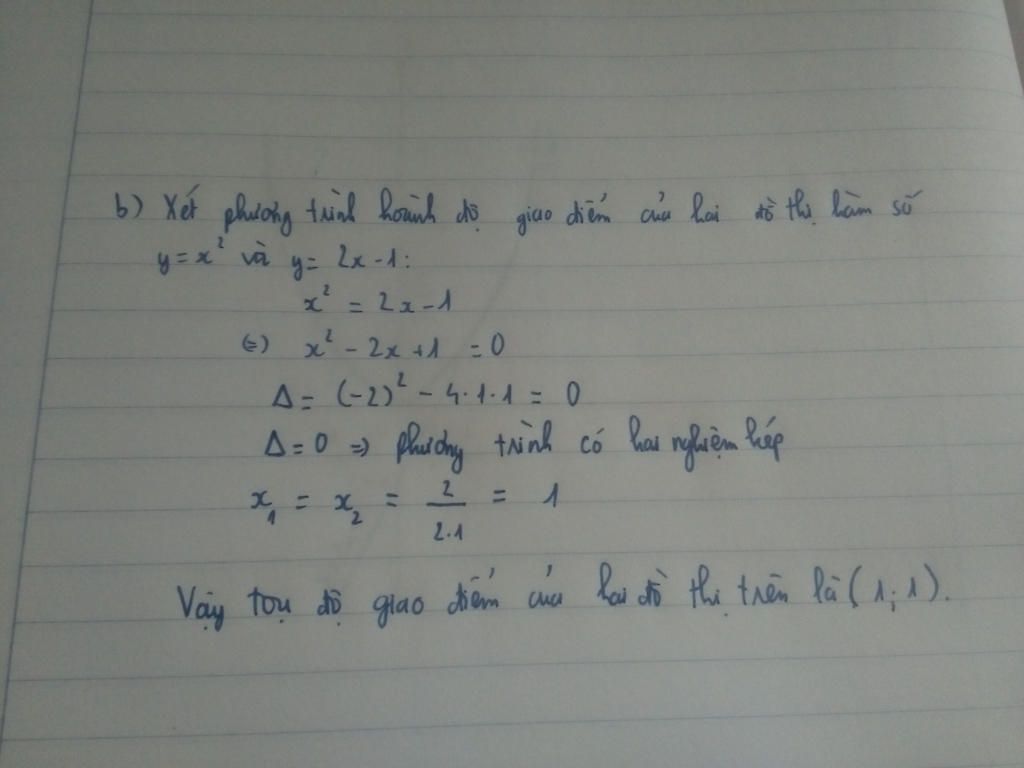 b) Xét phương trình hoành độ giao điểm của hai đồ thị hàm số
y = x² và y = 2x - 1 :
x² = 2x - 1
(=) x² - 2x + 1 = 0
Δ = (-2)² - 4 . 1 . 1 = 0
Δ = 0 => phương trình có hai nghiệm kép
x₁ = x₂ = 2/2.1 = 1
Vậy toạ độ giao điểm của hai đồ thị trên là (1; 1).